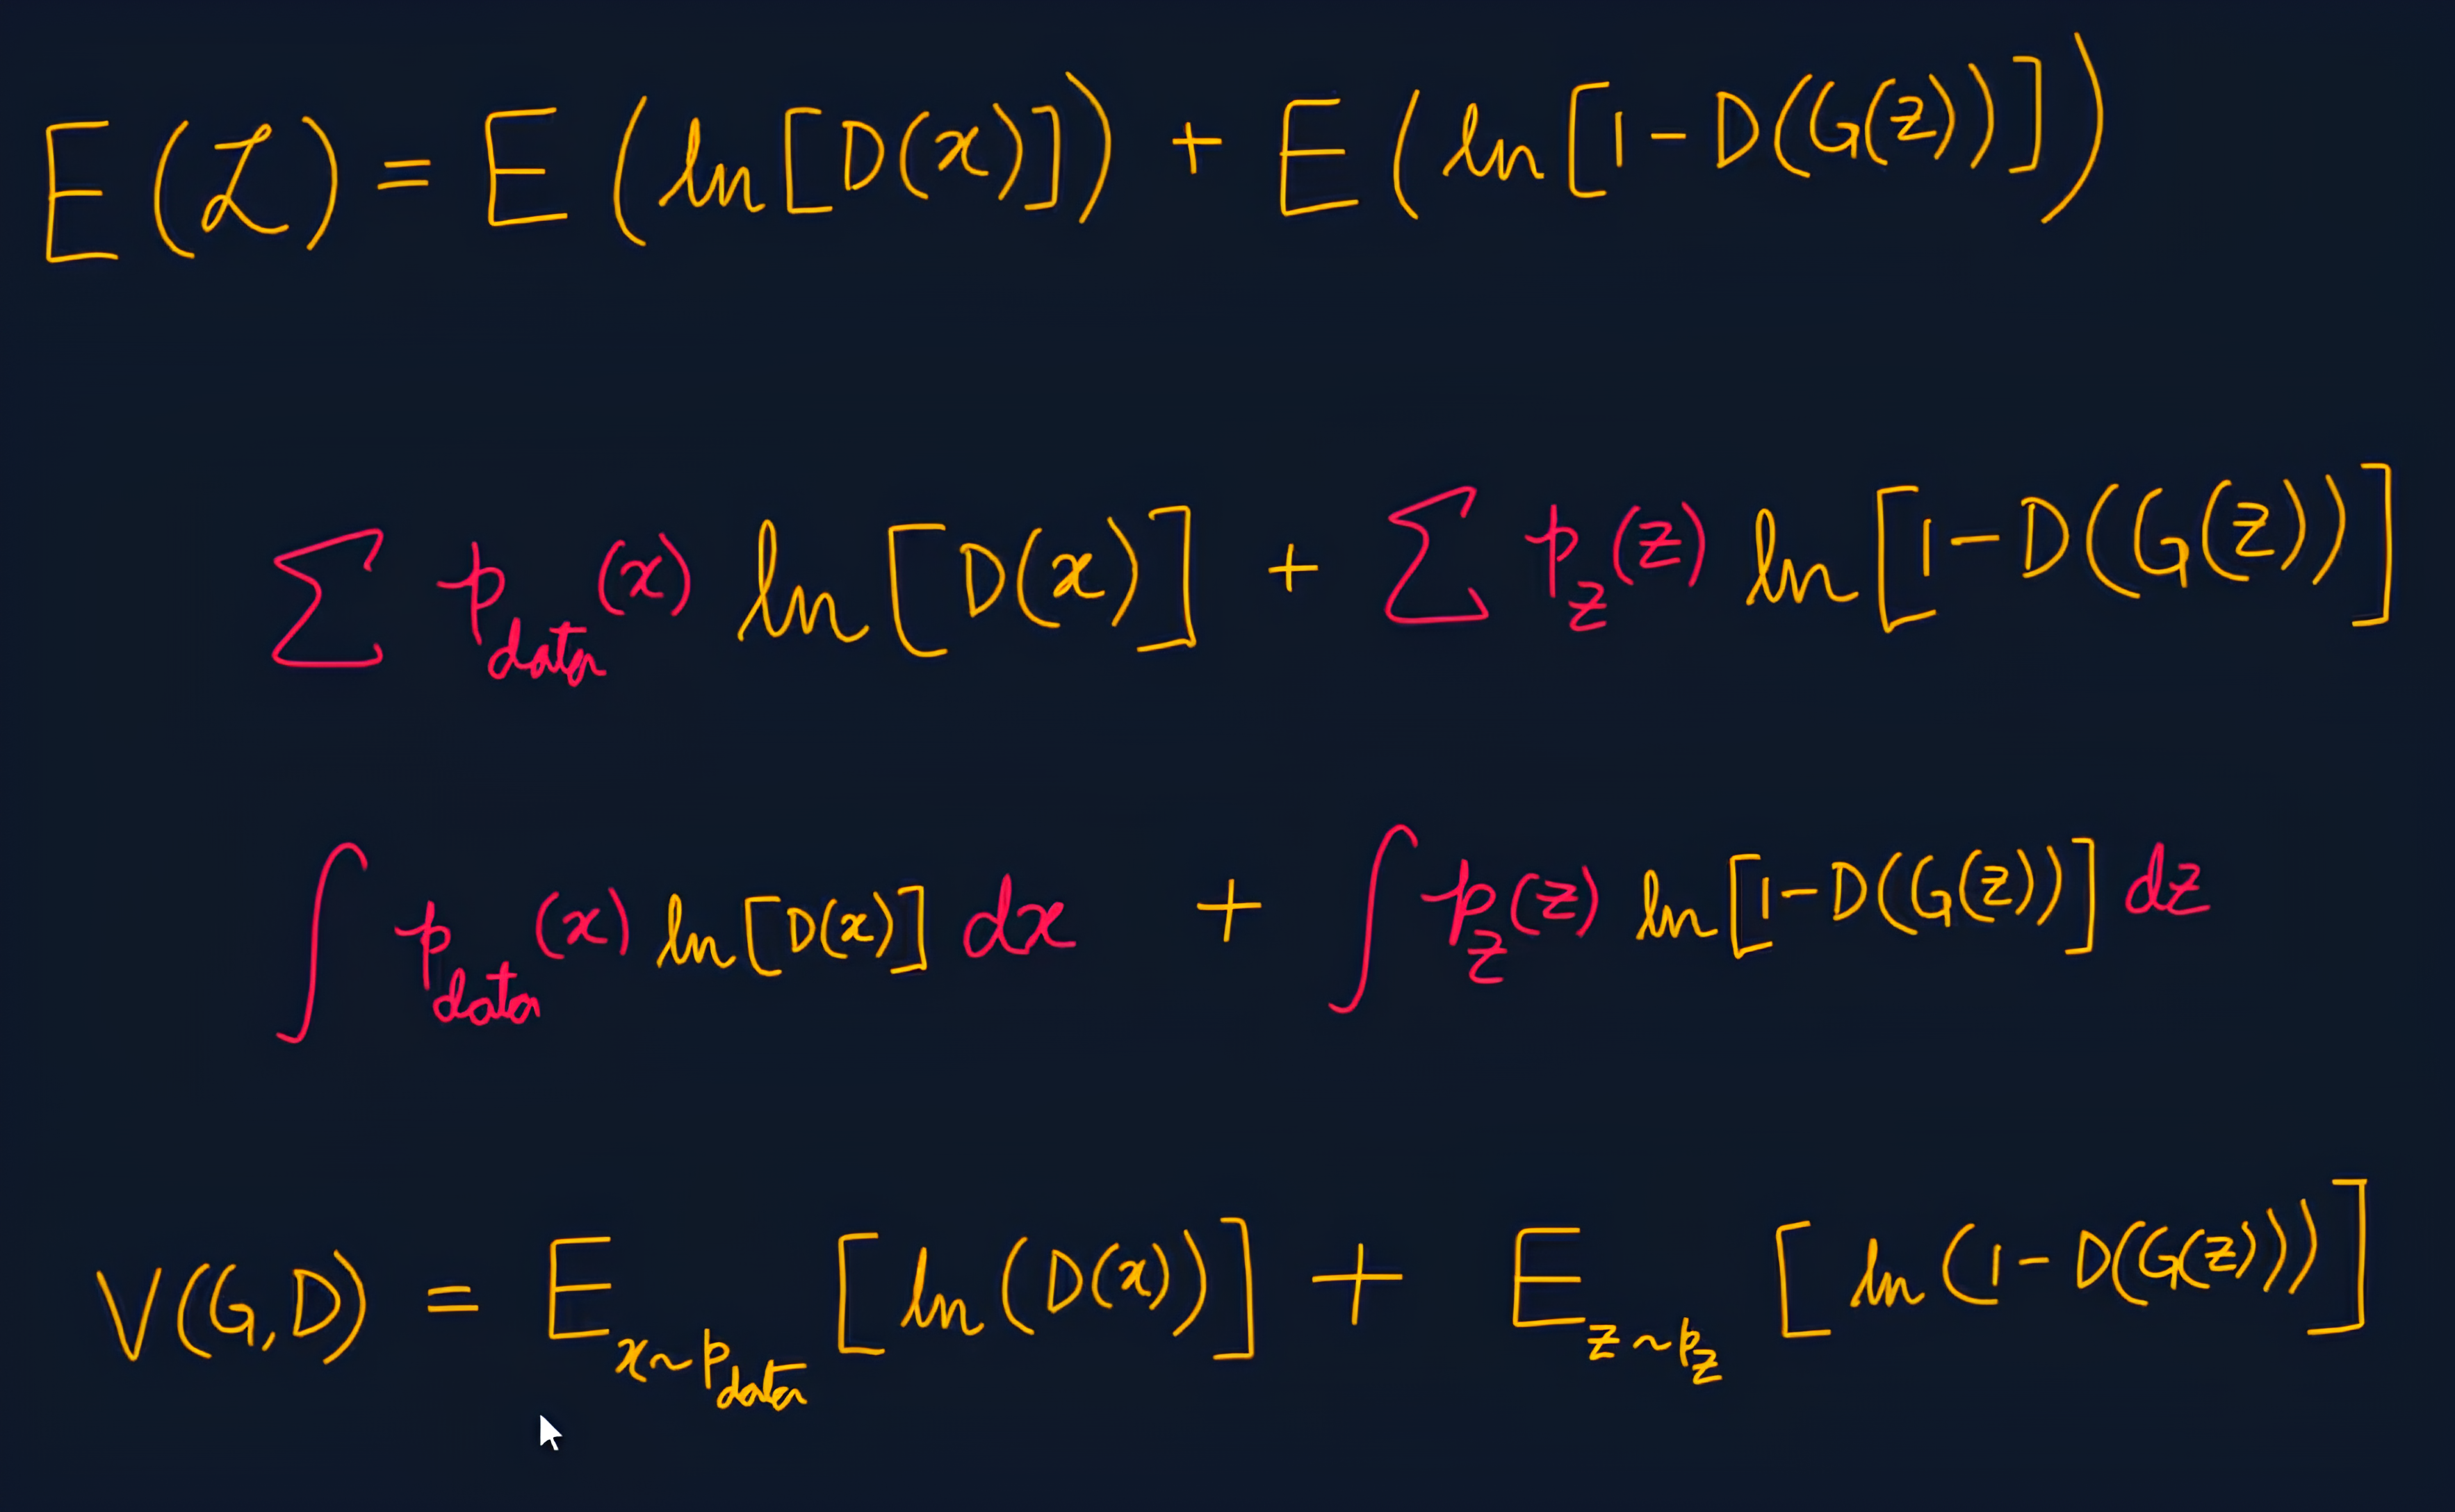 E(ℒ) = E(ln[D(x)]) + E(ln[1-D(G(z))])
∑ p_data(x) ln[D(x)] + ∑ p_z(z) ln[1-D(G(z))]
∫ p_data(x) ln[D(x)] dx + ∫ p_z(z) ln[1-D(G(z))] dz
V(G,D) = E_x~p_data [ln(D(x))] + E_z~p_z [ln(1-D(G(z)))]